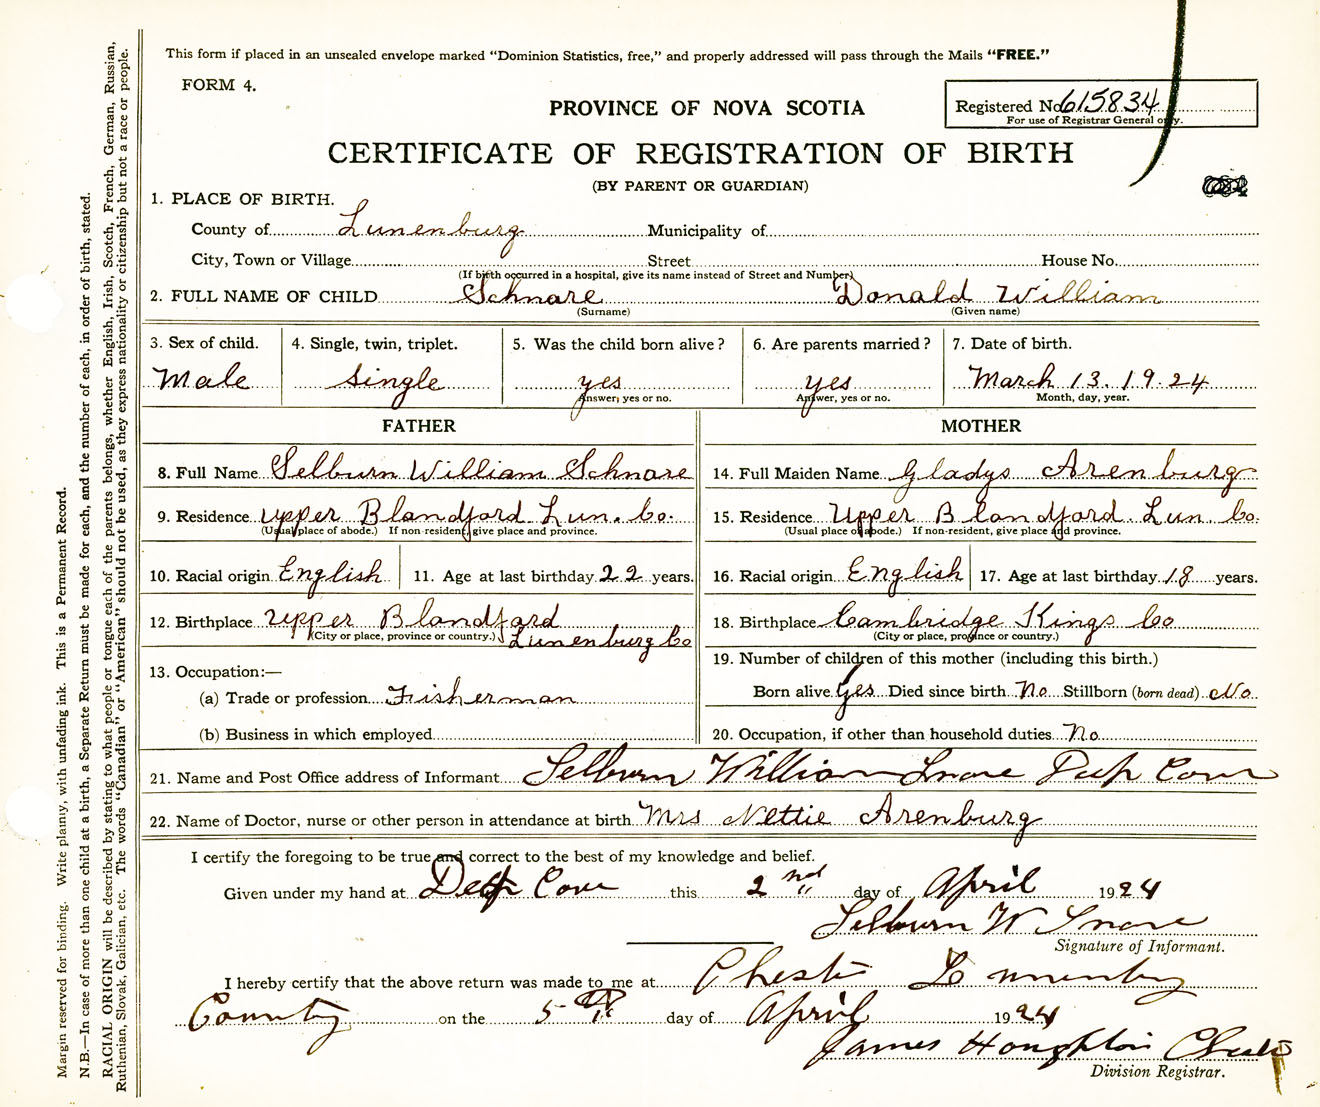 This form if placed in an unsealed envelope marked "Dominion Statistics, free," and properly addressed will pass through the Mails "FREE."
FORM 4.
PROVINCE OF NOVA SCOTIA
Registered No. 615834
For use of Registrar General only.
CERTIFICATE OF REGISTRATION OF BIRTH
(BY PARENT OR GUARDIAN)
1. PLACE OF BIRTH.
County of Lunenburg Municipality of
City, Town or Village Street House No.
(If birth occurred in a hospital, give its name instead of Street and Number)
2. FULL NAME OF CHILD Schnare Donald William
(Surname) (Given name)
3. Sex of child. 4. Single, twin, triplet. 5. Was the child born alive? 6. Are parents married? 7. Date of birth.
Male Single yes yes March 13. 1924
Answer, yes or no. Answer, yes or no. Month, day, year.
FATHER MOTHER
8. Full Name Selburn William Schnare 14. Full Maiden Name Gladys Arenburg
9. Residence Upper Blandford Lun. Co. 15. Residence Upper Blandford. Lun. Co.
(Usual place of abode.) If non-resident, give place and province. (Usual place of abode.) If non-resident, give place and province.
10. Racial origin English 11. Age at last birthday 22 years. 16. Racial origin English 17. Age at last birthday 18 years.
12. Birthplace Upper Blandford 18. Birthplace Cambridge Kings Co
(City or place, province or country.) Lunenburg Co (City or place, province or country.)
13. Occupation:— 19. Number of children of this mother (including this birth.)
(a) Trade or profession Fisherman Born alive Yes Died since birth No Stillborn (born dead) No
(b) Business in which employed 20. Occupation, if other than household duties No
21. Name and Post Office address of Informant Selburn William Snare Deep Cove
22. Name of Doctor, nurse or other person in attendance at birth Mrs Nettie Arenburg
I certify the foregoing to be true and correct to the best of my knowledge and belief.
Given under my hand at Deep Cove this 2nd day of April 1924
Selburn W Snare
Signature of Informant.
I hereby certify that the above return was made to me at Chester Lunenburg
County on the 5th day of April 1924
James Houghton Chester
Division Registrar.
Margin reserved for binding. Write plainly, with unfading ink. This is a Permanent Record.
N.B.—In case of more than one child at a birth, a Separate Return must be made for each, and the number of each, in order of birth, stated.
RACIAL ORIGIN will be described by stating to what people or tongue each of the parents belongs, whether English, Irish, Scotch, French, German, Russian,
Ruthenian, Slovak, Galician, etc. The words "Canadian" or "American" should not be used, as they express nationality or citizenship but not a race or people.